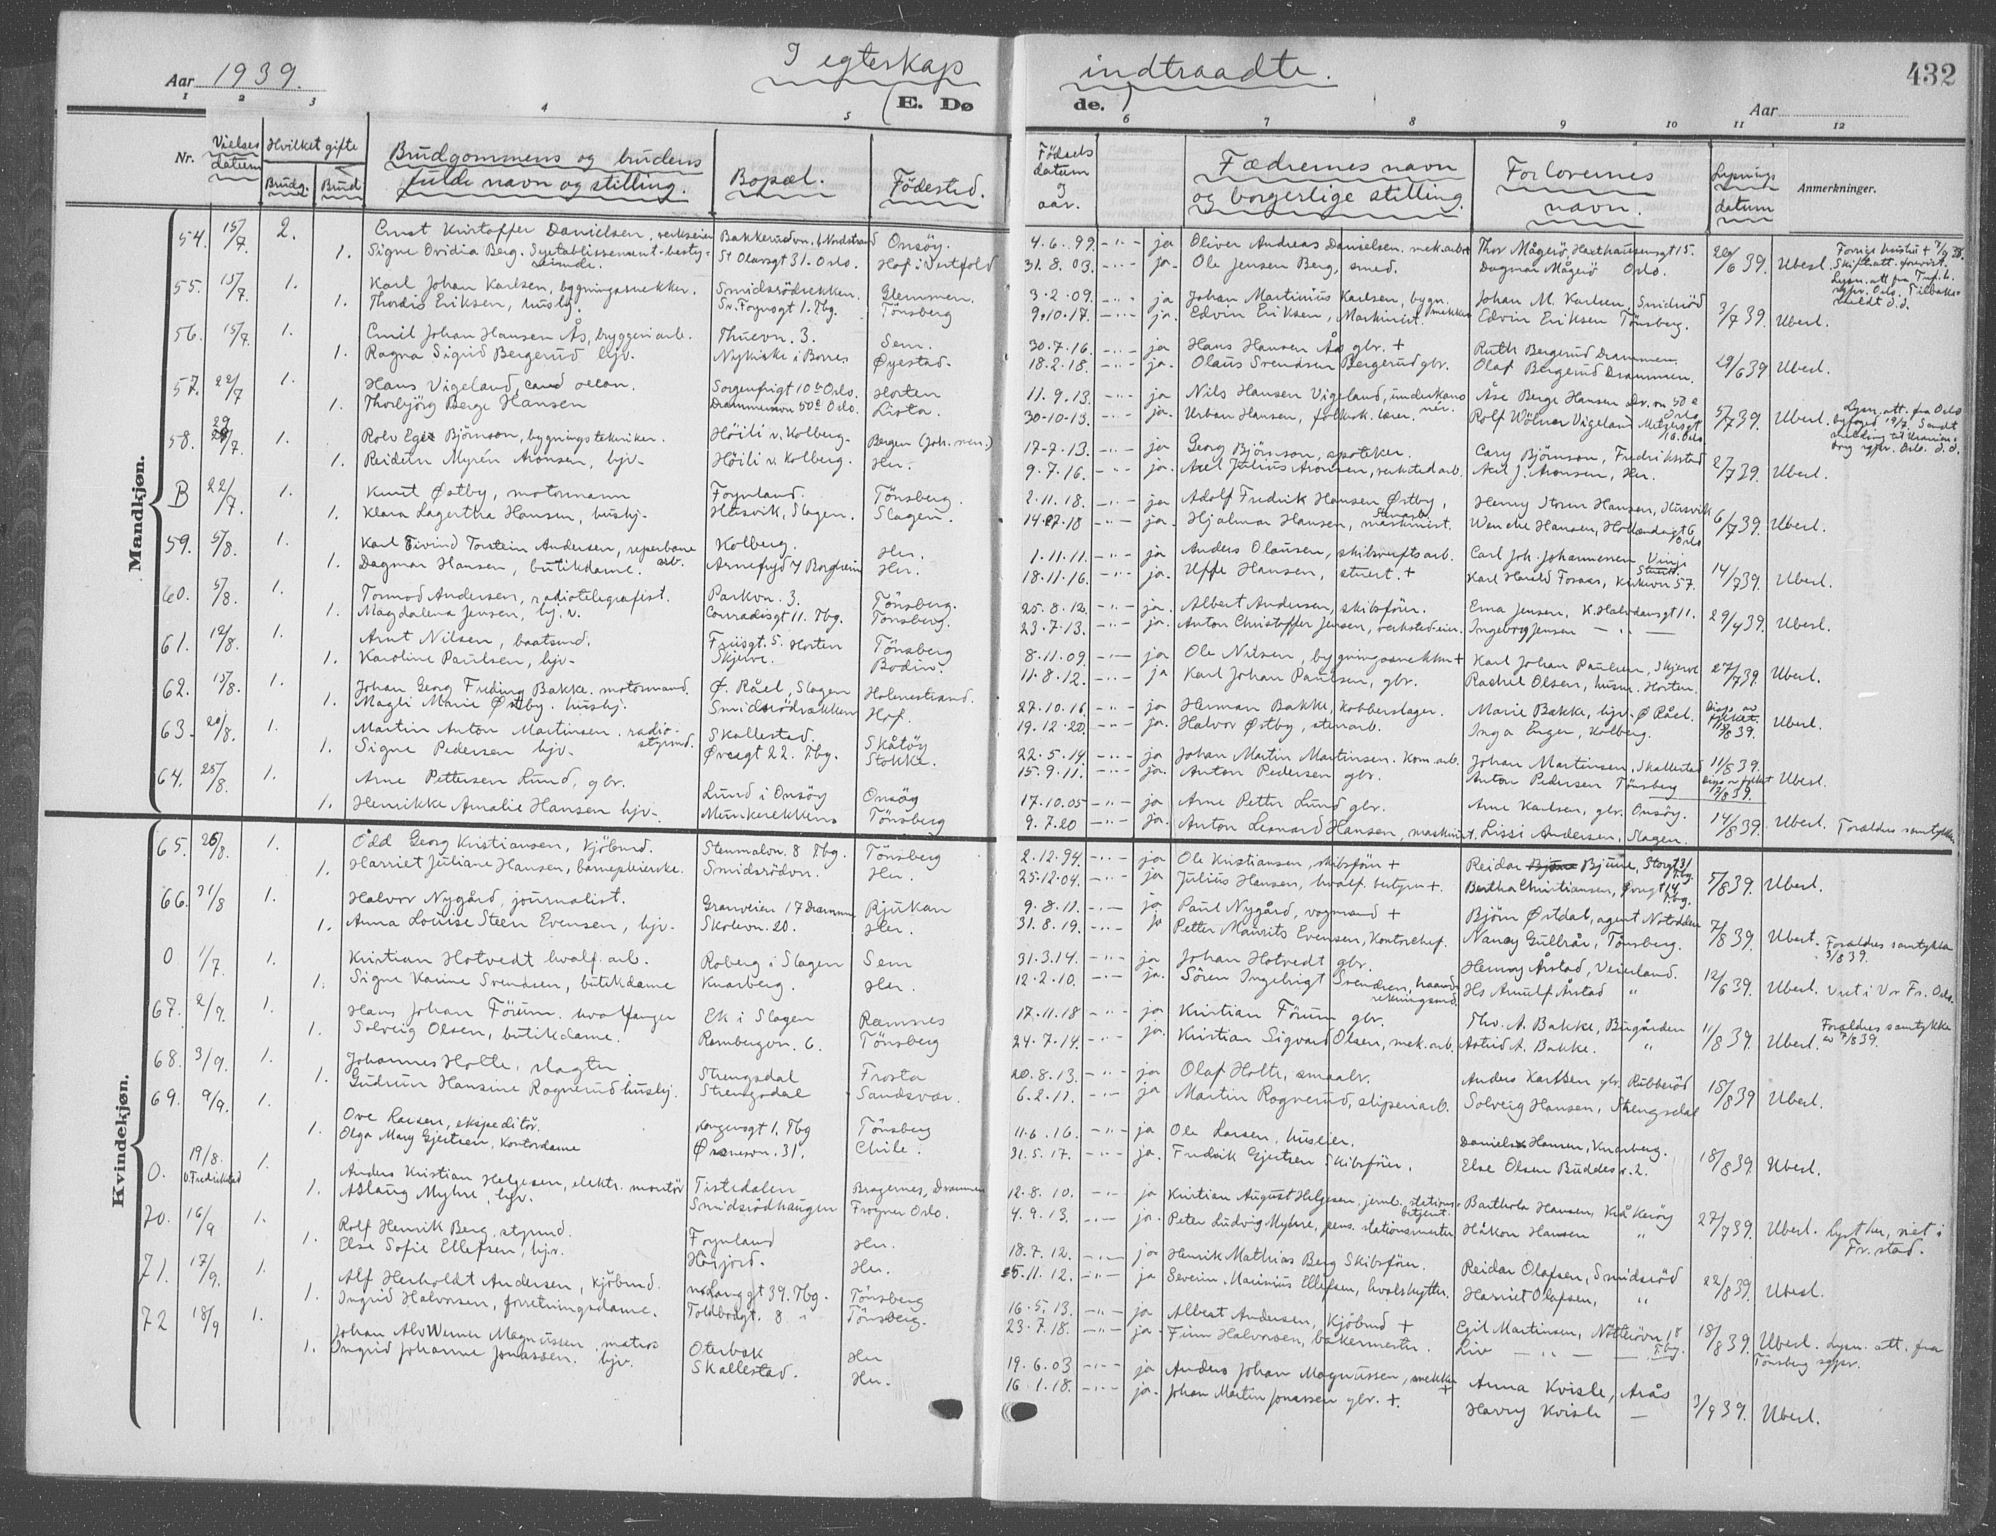 Aar 1939.
I egteskap indtraadte.
432
(E. Døde.)
Aar
1 2 3 4 5 6 7 8 9 10 11 12
Nr.
Vielses datum
Hvilket gifte
Brudg.
Brud
Brudgommens og brudens fulde navn og stilling.
Bopæl.
Födested.
Födsels datum og aar.
Fædrenes navn og borgerlige stilling.
Forlovernes navn.
Lysnings datum
Anmerkninger.
Mandkjøn.
54. 15/7. 2. Ernst Kristoffer Danielsen, verkseier Bakkerudvn. 6 Nordstrand Onsöy. 4.6.99 ja Oliver Andreas Danielsen. mek.arb. Thor Mågerö, Haxthausensgt 15.
1. Signe Ovidia Berg. Syetablissement-bestyrerinde. St Olavsgt 31. Oslo. Hof i Vestfold 31.8.03. ja. Ole Jensen Berg, smed. Dagmar Mågerö Oslo. 20/6 39. Ubesl.
55. 15/7. 1. Karl Johan Karlsen, bygningssnekker. Smidsrödrekken. Glemmen. 3.2.09. ja Johan Martinius Karlsen, bygn.snekker Johan M. Karlsen, Smidsröd
1. Thordis Eriksen, husbj. Sv. Foynsgt 1. Tbg. Tönsberg 9.10.17. ja. Edvin Eriksen, Maskinist. Edvin Eriksen Tönsberg. 3/7 39. Ubesl.
56. 15/7. 1. Emil Johan Hansen Ås, byggeriarb. Thuevn. 3. Sem. 30.7.16. ja Hans Hansen Ås gbr. + Ruth Bergerud Drammen.
1. Ragna Sigrid Bergerud hjv. Nykirke i Borre Øyestad. 18.2.18. ja. Olaus Svendsen Bergerud gbr. Olaf Bergerud Drammen. 29/6 39 Ubesl.
57. 22/7 1. Hans Vigeland, cand oecon. Sorgenfrigt 10b Oslo. Horten 11.9.13. ja Nils Hansen Vigeland, Åse Berge Hansen Dr.vn 50 e Oslo
1. Thorbjörg Berge Hansen Drammensvn 50e Oslo. Lista. 30.10.13. ja. Urban Hansen, folksk. lærer. Rolf Wölner Vigeland 5/7 39. Ubesl.
58. 29/7. 1. Rolv Egil Björnson, bygningstekniker. Höili v. Kolberg. Bergen (Joh. men.) 17.7.13. ja Georg Björnson, apoteker. Cary Björnson, Fredrikstad
1. Reidun Myrén Aronsen, hjv. Höili v. Kolberg. Her. 9.7.16. ja. Axel Julius Aronsen, verkstedarb. Axel J. Aronsen, Her. 2/7 39. Ubesl.
B 22/7. 1. Knut Østby, motormann Foynland. Tönsberg. 2.11.18. ja Adolf Fredrik Hansen Østby, stenarb. Henry Storm Hansen, Husvik
1. Klara Lagertha Hansen, hushj. Husvik, Slagen. Slagen. ja. Hjalmar Hansen, maskinist. Wenche Hansen, Oslo 6/7 39. Ubesl.
59. 5/8. 1. Karl Eivind Torstein Andersen, reperbanearb. Kolberg. Her. 1.11.11. ja Anders Olausen, skibsverftsarb. Carl Joh. Johannesen
1. Dagmar Hansen, butikdame. Her. 18.11.16. ja. Uffe Hansen, stuert. + Karl Harald Foraas, Kirkevn 57. 14/7 39. Ubesl.
60. 5/8. 1. Tormod Andersen, radiotelegrafist. Parkvn. 3. Tönsberg. 25.8.12. ja Albert Andersen, skibsförer. Erna Jensen, K. Halvdansgt 11.
1. Magdalena Jensen, hj.v. Conradisgt 11. Tbg. Tönsberg. 23.7.13. ja. Anton Christoffer Jensen, verkstedeier. Ingeborg Jensen 29/4 39. Ubesl.
61. 12/8. 1. Arnt Nilsen, baatsmd. Friisgt. 5. Horten Tönsberg 8.11.09. ja Ole Nilsen, bygningssnekker + Karl Johan Paulsen, Skjerve
1. Karoline Paulsen, hjv. Skjerve. Bodin. 11.8.12. ja Karl Johan Paulsen, gbr. Rachel Olsen, husm. Horten. 27/7 39. Ubesl.
62. 15/8. 1. Johan Georg Bakke. motormand. Ø. Råel, Slagen Holmestrand. 27.10.16 ja Herman Bakke, kobberslager. Marie Bakke, hjv. Ø Råel.
1. Magli Marie Østby. hushj. Smidsrödrekken Hof. 19.12.20. ja. Halvor Østby, stenarb. Inga Enger, Kolberg. Ubesl.
63. 20/8. 1. Martin Anton Martinsen. radiostyrmd. Skallestad. Skåtöy 22.5.14. ja Johan Martin Martinsen. Kom.arb. Johan Martinsen, Skallestad 11/8 39.
1. Signe Pedersen hjv. Øvregt 22. Tbg. Stokke. 15.9.11. ja. Anton Pedersen gbr. Anton Pedersen Tönsberg Ubesl.
64. 25/8. 1. Arne Pettersen Lund, gbr. Lund i Onsöy Onsöy 17.10.05 ja Arne Petter Lund gbr. Arne Karlsen, gbr. Onsöy.
1. Henrikke Amalie Hansen hjv. Munkerekken Tönsberg 9.7.20 ja. Anton Leonard Hansen, maskinist. Lissi Andersen, Slagen. 14/8 39. Ubesl. Forældres samtykke.
Kvindekjøn.
65. 26/8. 1. Odd Georg Kristiansen, kjöbmd. Stenmalvn. 8 Tbg. Tönsberg 2.12.94. ja Ole Kristiansen, skibsförer + Reidar Bjune, Storgt 31 Tbg.
1. Harriet Juliane Hansen, barnepleierske. Smidsrödvn. Her. 25.12.04. ja Julius Hansen, hvalf. bestyrer +. Bertha Christiansen, Øvregt 14 Tbg. 5/8 39. Ubesl.
66. 31/8 1. Halvor Nygård, journalist. Granveien 17 Drammen Rjukan 9.8.11. ja Paul Nygård, vognmand + Björn Østdal, agent Notodden
1. Anna Louise Steen Evensen, hjv. Skolevn. 20. Her. 31.8.19. ja Petter Maurits Evensen, Kontorchef. Nancy Gullrår, Tönsberg. 7/8 39. Ubesl. Forældres samtykke 3/8 39.
O 1/7. 1. Kristian Hotvedt hvalf. arb. Roberg i Slagen Sem 31.3.14. ja Johan Hotvedt gbr. Henry Årstad, Veierland.
1. Signe Karine Svendsen, butikdame Knarberg. Her. 12.2.10. ja. Sören Ingebrigt Svendsen, Hs Arnulf Årstad " 12/6 39. Ubesl. Viet i Vor Fr. Oslo.
67. 2/9. 1. Hans Johan Förum. hvalfanger Ek i Slagen Ramnes 17.11.18 ja Kristian Förum gbr. Thv. A. Bakke, Burgården
1. Solveig Olsen, butikdame. Rambergvn. 6. Tönsberg 24.7.14. ja. Kristian Sigvard Olsen, mek.arb. Astrid A. Bakke. " 11/8 39. Ubesl. Forældres samtykke av 7/8 39.
68. 3/9. 1. Johannes Holte, slagter Strengsdal Frosta 20.8.13. ja Olaf Holte, smaabr. Anders Karlsen gbr. Rubberöd
1. Gudrun Hansine Rogneruud hushj. Strengsdal Sandsvær. 6.2.11. ja Martin Rognerud, sliperiarb. Solveig Hansen, Strengsdal 18/8 39 Ubesl.
69. 9/9. 1. Ove Larsen, ekspeditör. Kongensgt 1. Tbg Tönsberg 11.6.16. ja Ole Larsen, huseier. Daniel Hansen, Knarberg.
1. Olga Mary Gjertsen, Kontordame Ørsnesvn. 31. Chile. 21.5.17. ja. Fredrik Gjertsen Skibsförer. Else Olsen Buddesv. 2. 18/8 39. Ubesl.
O. 19/8. i Fredrikstad 1. Anders Kristian Helgesen, elektr. montör Tistedalen Bragernes, Drammen 12.8.10. ja Kristian August Helgesen, jernb. stationsbetjent. Barthold Hansen, Kråkeröy
1. Aslaug Myhre, hjv. Smidsrödhaugen Frogner Oslo. 4.9.13. ja. Peter Ludvig Myhre, pens. stationsmester Håkon Hansen " 27/7 39. Ubesl. Lyst her, viet i Fr.stad.
70. 16/9 1. Rolf Henrik Berg, styrmd. Foynland Her. 18.7.12. ja Henrik Mathias Berg Skibsförer. Reidar Olafsen, Smidsröd
1. Else Sofie Ellefsen, hjv. Hårjord. Her. 5.11.12. ja Severin Marinius Ellefsen, hvalskytter. Harriet Olafsen, " 22/8 39. Ubesl.
71. 17/9. 1. Alf Herholdt Andersen, kjöbmd. Nedre Langgt 39. Tbg. Tönsberg 16.5.13. ja Albert Andersen, Kjöbmd + Egil Martinsen, Nötteröyvn. 18 Tbg.
1. Ingrid Halvorsen, forretningsdame. Toldbodgt. 8 " Tönsberg. 23.7.18. ja. Finn Halvorsen, bakermester. Liv 18/8 39. Ubesl. Lysn. att. fra Tönsberg sgpr.
72 18/9 1. Johan Alv Werner Magnussen. matros Oterbæk Her 19.6.03 ja Anders Johan Magnussen, snekker + Anna Kvisle, Årås
1. Ingrid Johanne Jonassen. hjv. Skallestad. Her. 16.1.18. ja. Johan Martin Jonassen gbr. +. Harry Kvisle 3/9 39. Ubesl.